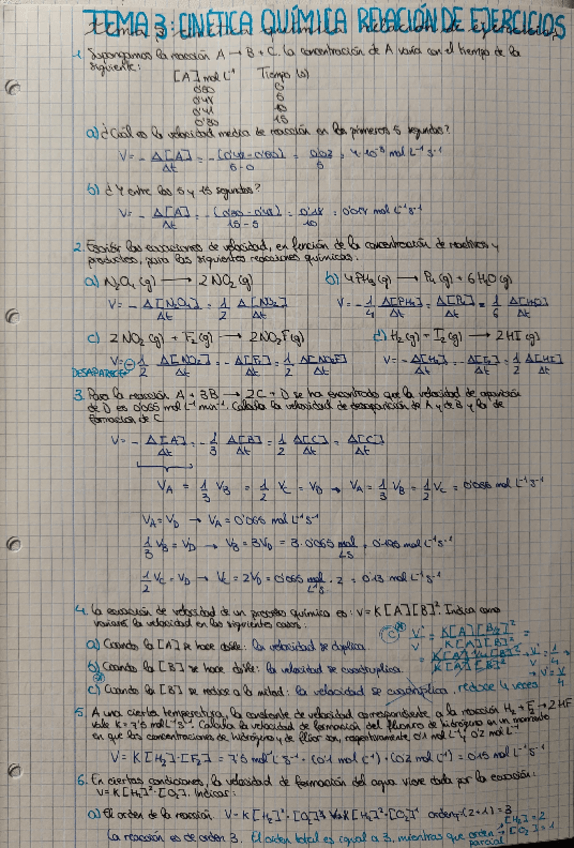 TEMA 3: CINÉTICA QUÍMICA RELACIÓN DE EJERCICIOS
1. Supongamos la reacción A → B + C. La concentración de A varía con el tiempo de la
siguiente:
[A] mol L⁻¹ Tiempo (s)
0
5
10
0'30 15
a) ¿Cuál es la velocidad media de reacción en los primeros 5 segundos?
V = - Δ[A]/Δt = - (0'48-0'50)/5-0 = 0'02/5 = 4·10⁻³ mol L⁻¹ s⁻¹
b) ¿Y entre los 5 y 15 segundos?
V = - Δ[A]/Δt = - (0'30-0'48)/15-5 = 0'18/10 = 0'018 mol L⁻¹ s⁻¹
2. Escribir las ecuaciones de velocidad, en función de la concentración de reactivos y
productos, para las siguientes reacciones químicas.
a) N₂O₄ (g) → 2NO₂ (g) b) 4PH₃ (g) → P₄ (g) + 6H₂O (g)
V = - Δ[N₂O₄]/Δt = 1/2 Δ[NO₂]/Δt V = - 1/4 Δ[PH₃]/Δt = Δ[P₄]/Δt = 1/6 Δ[H₂O]/Δt
c) 2NO₂ (g) + F₂ (g) → 2NO₂F (g) d) H₂ (g) + I₂ (g) → 2HI (g)
V = - 1/2 Δ[NO₂]/Δt = - Δ[F₂]/Δt = 1/2 Δ[NO₂F]/Δt V = - Δ[H₂]/Δt = - Δ[I₂]/Δt = 1/2 Δ[HI]/Δt
DESAPARECE
3. Para la reacción A + 3B → 2C + D se ha encontrado que la velocidad de aparición
de D es 0'065 mol L⁻¹ min⁻¹. Calcula la velocidad de desaparición de A y de B y la de
formación de C
V = - Δ[A]/Δt = - 1/3 Δ[B]/Δt = 1/2 Δ[C]/Δt = Δ[C]/Δt
V_A = 1/3 V_B = 1/2 V_C = V_D → V_A = 1/3 V_B = 1/2 V_C = 0'065 mol L⁻¹ s⁻¹
V_A = V_D → V_A = 0'065 mol L⁻¹ s⁻¹
1/3 V_B = V_D → V_B = 3V_D = 3 · 0'065 mol/L·s = 0'195 mol L⁻¹ s⁻¹
1/2 V_C = V_D → V_C = 2V_D = 0'065 mol/L·s · 2 = 0'13 mol L⁻¹ s⁻¹
4. La ecuación de velocidad de un proceso químico es: V = K [A] [B]². Indica como
variará la velocidad en los siguientes casos:
a) Cuando la [A] se hace doble: la velocidad se duplica.
b) Cuando la [B] se hace doble: la velocidad se cuadruplica.
c) Cuando la [B] se reduce a la mitad: la velocidad se cuadruplica, reduce 4 veces
5. A una cierta temperatura, la constante de velocidad correspondiente a la reacción H₂ + F₂ → 2HF
vale K = 7'5 mol⁻¹ L s⁻¹. Calcula la velocidad de formación del fluoruro de hidrógeno en un momento
en que las concentraciones de hidrógeno y de flúor son, respectivamente, 0'1 mol L⁻¹, 0'2 mol L⁻¹
V = K [H₂] · [F₂] = 7'5 mol⁻¹ L s⁻¹ · (0'1 mol L⁻¹) · (0'2 mol L⁻¹) = 0'15 mol L⁻¹ s⁻¹
6. En ciertas condiciones, la velocidad de formación del agua viene dada por la ecuación:
V = K [H₂]² · [O₂]. Indicar:
a) El orden de la reacción. V = K [H₂]² · [O₂] K [H₂]² · [O₂]¹ orden = (2+1) = 3
La reacción es de orden 3. El orden total es igual a 3, mientras que orden parcial [H₂] = 2 [O₂] = 1